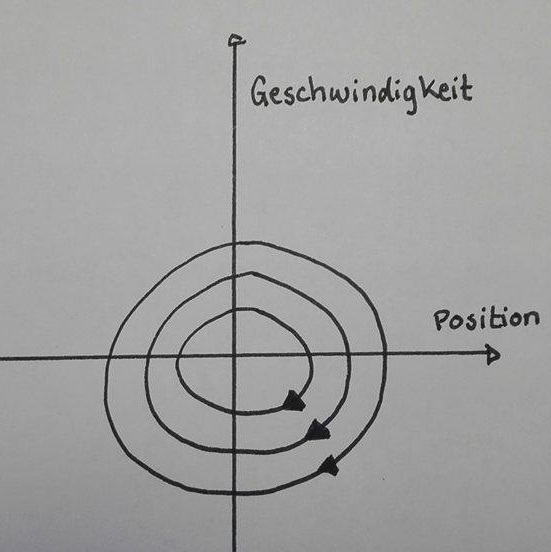 Geschwindigkeit
Position